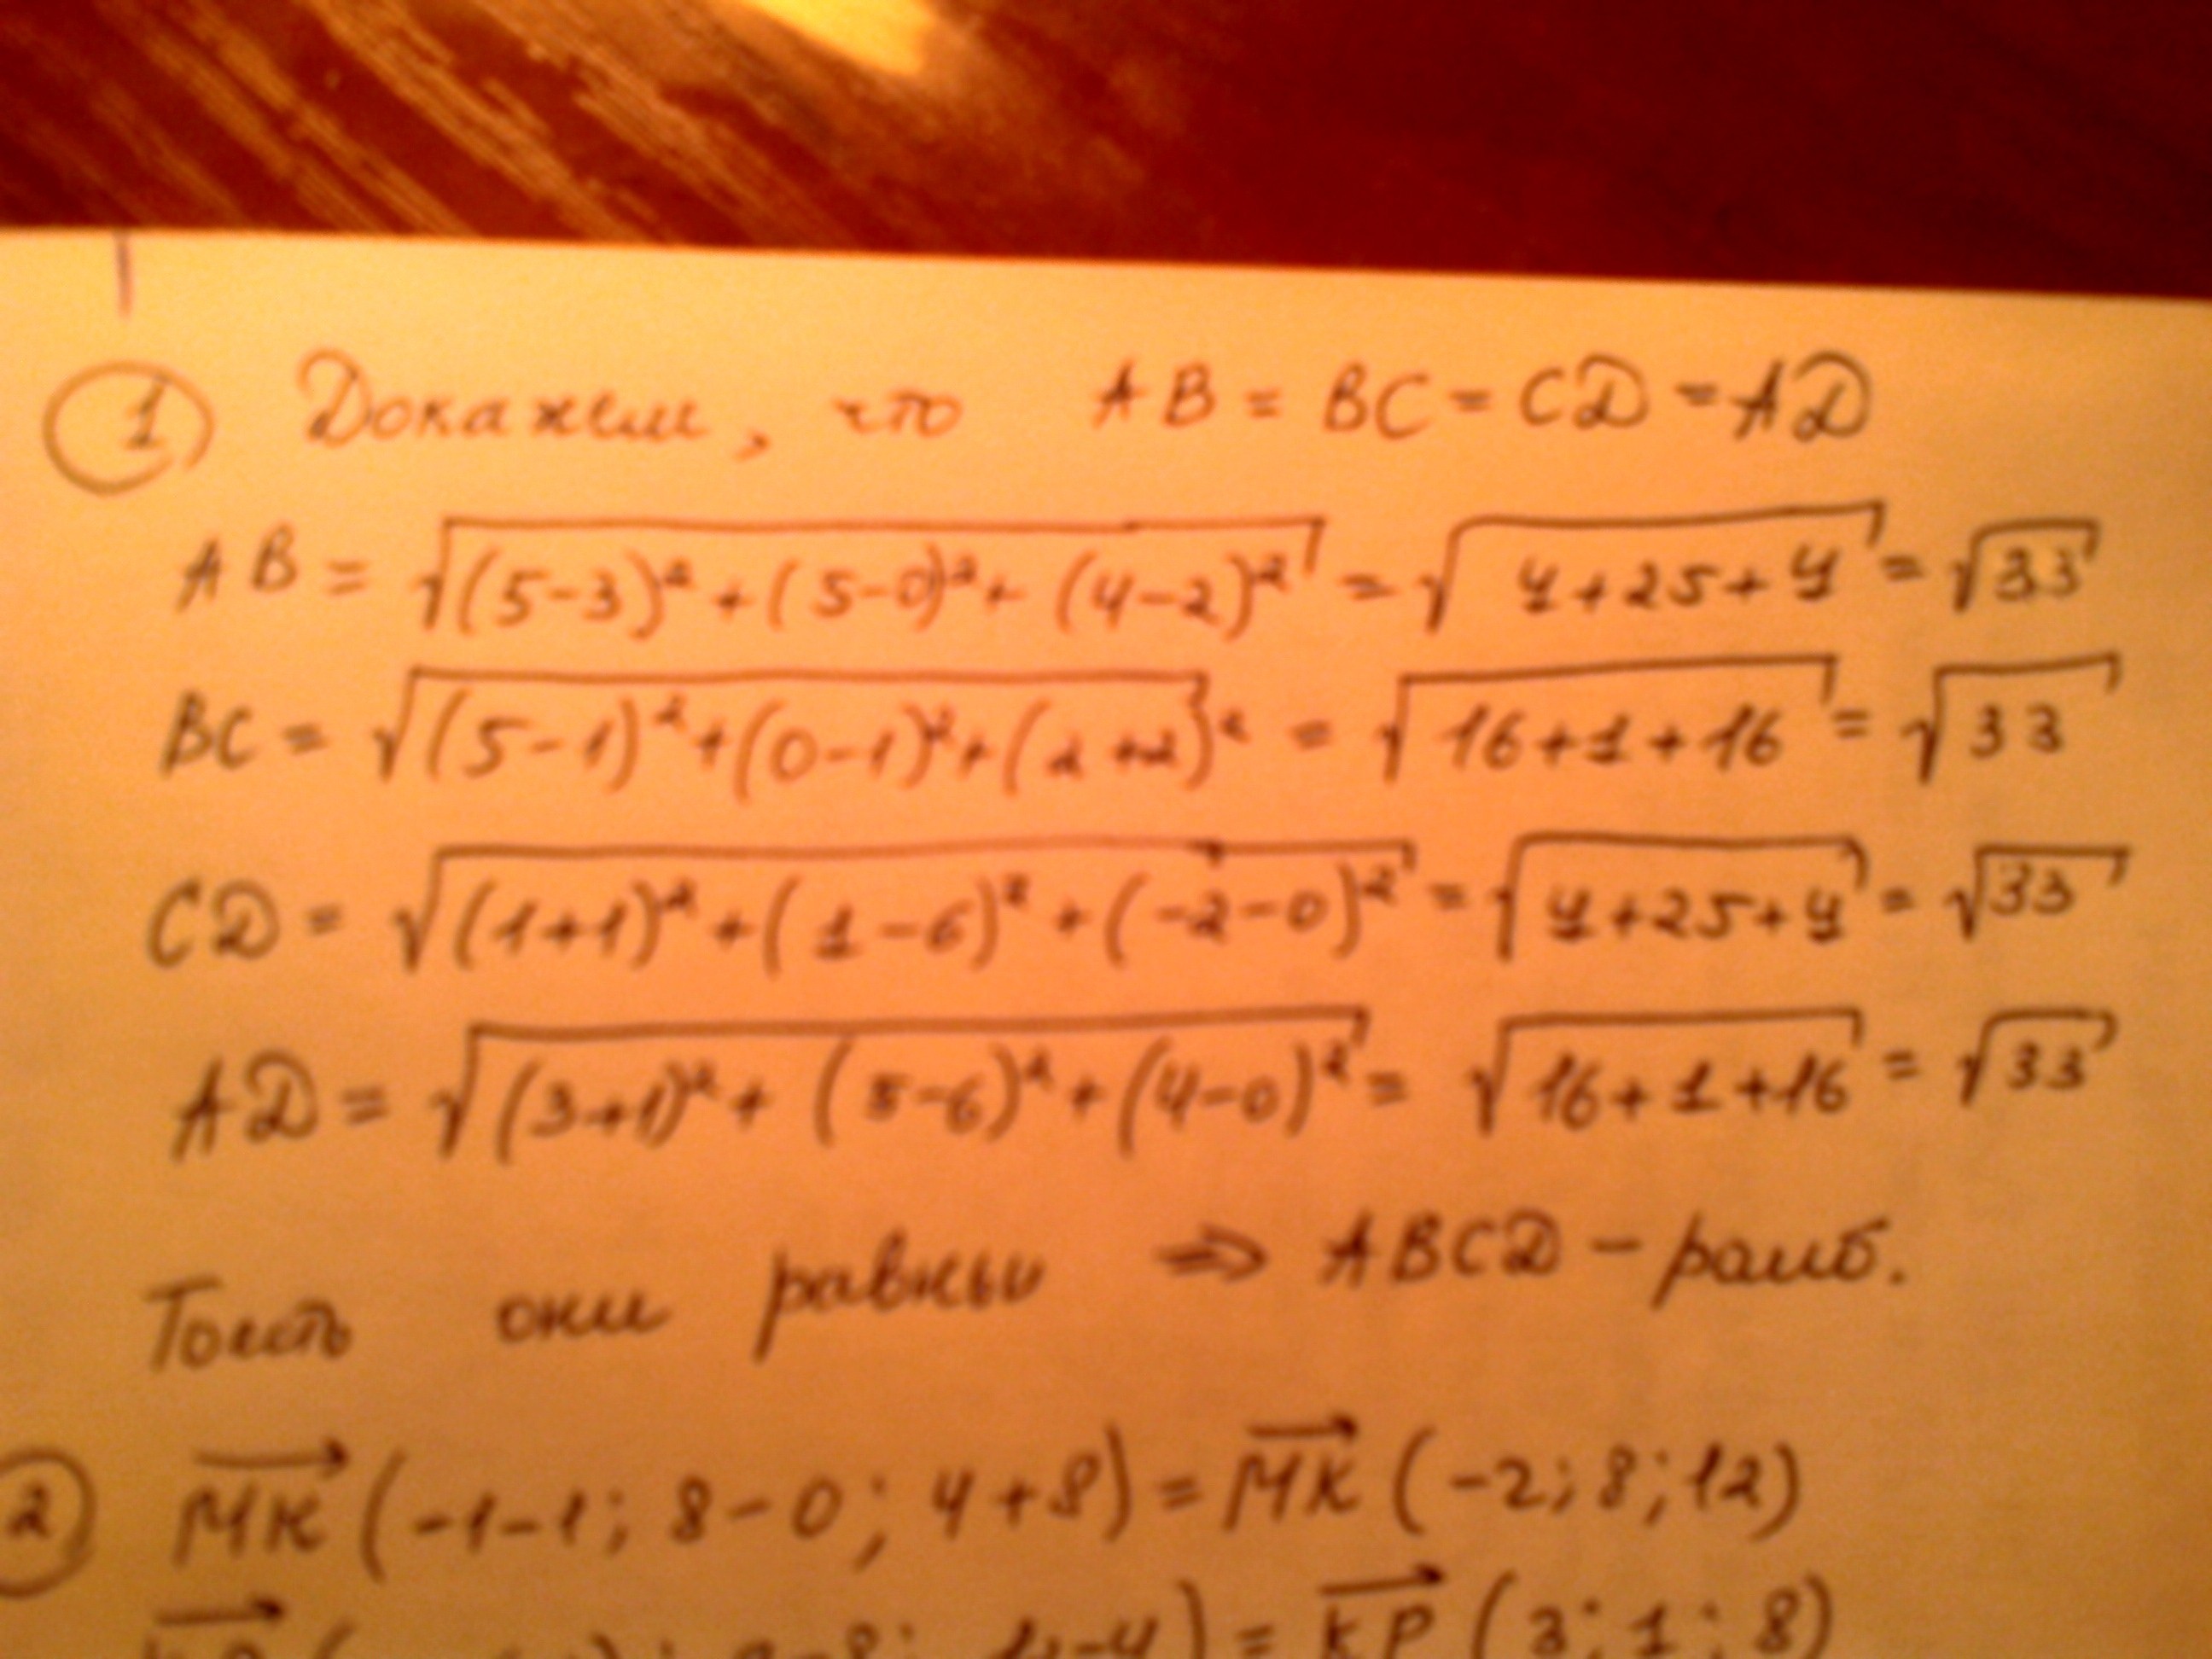 1 Докажем, что AB = BC = CD = AD
AB = √(5-3)² + (5-0)² + (4-2)² = √4+25+4 = √33
BC = √(5-1)² + (0-1)² + (2+2)² = √16+1+16 = √33
CD = √(1+1)² + (1-6)² + (-2-0)² = √4+25+4 = √33
AD = √(3+1)² + (5-6)² + (4-0)² = √16+1+16 = √33
Тоесть они равны ⇒ ABCD - ромб.
2 MK (-1-1; 8-0; 4+8) = MK (-2; 8; 12)
-4) = KP (3; 1; 8)